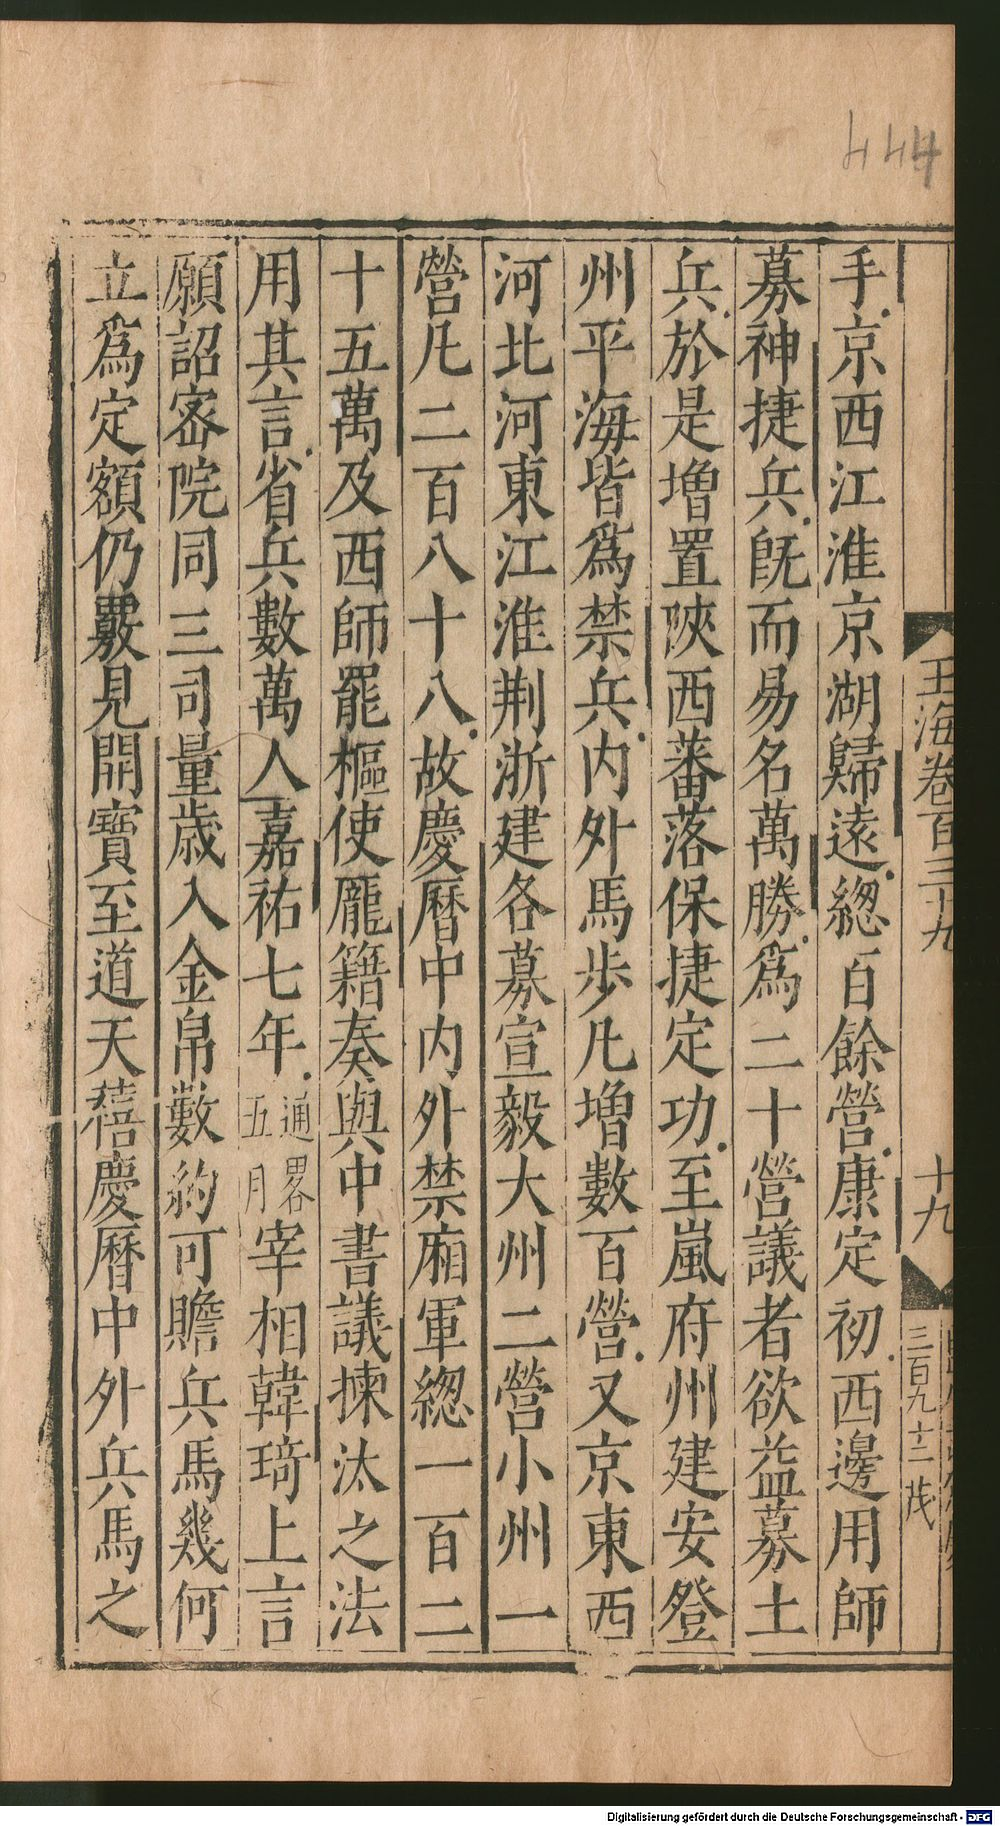 444
玉海卷百三十九
十九
三百九十二
茂
手京西江淮京湖歸遠總百餘營康定初西邊用師
募神捷兵旣而易名萬勝爲二十營議者欲益募土
兵於是增置陝西蕃落保捷定功至嵐府州建安登
州平海皆爲禁兵内外馬步凡增數百營又京東西
河北河東江淮荆浙建各募宣毅大州二營小州一
營凡二百八十八故慶曆中内外禁廂軍總一百二
十五萬及西師罷樞使龐籍奏與中書議揀汰之法
用其言省兵數萬人嘉祐七年通畧五月宰相韓琦上言
願詔密院同三司量歲入金帛數約可贍兵馬幾何
立爲定額仍覈見開寶至道天禧慶曆中外兵馬之
Digitalisierung gefördert durch die Deutsche Forschungsgemeinschaft - DFG